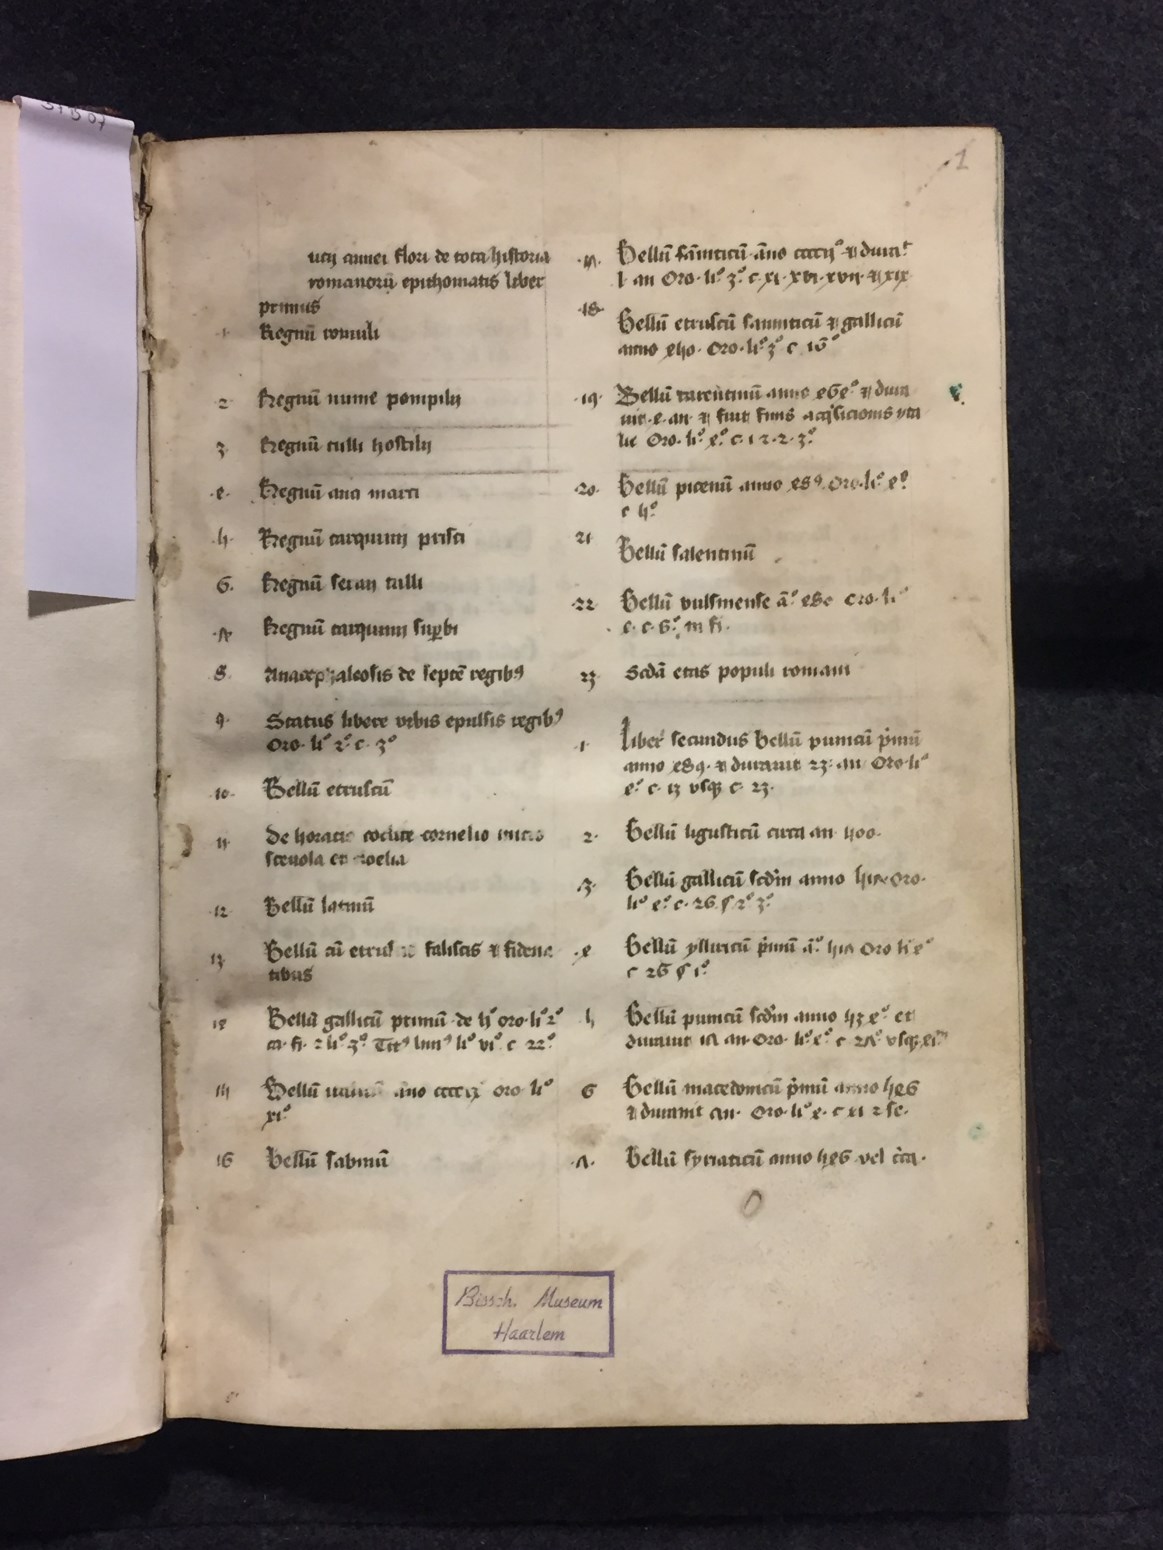 1
ucij annei flori de tota historia
romanorū epithomatis liber
primus
1 Regnū romuli
2 Regnū nume pompilij
3 Regnū tulli hostilij
4 Regnū anci marci
5 Regnū tarquinij prisci
6 Regnū seruij tulli
7 Regnū tarquinij supbi
8 Anacephaleosis de septē regibꝰ
9 Status libere vrbis epulsis regibꝰ
Oro. liº 2º c. 3º
10 Bellū etruscū
11 De horatio coclite cornelio
sceuola et cloelia
12 Bellū latinū
13 Bellū cū faliscis ⁊ fidena
tibus
14 Bellū gallicū primū de oro. liº 2º
liº 3º Titꝰ liuiꝰ liº viº c 22º
15 Bellū oro liº
xiº
16 Bellū sabinū
17 Bellū sāniticū āno ⁊ durat
Oro. liº 3º c xi. xvi. xvii. ⁊ xix
18 Bellū etruscū sanniticū ⁊ gallicū
anno Oro. liº 3º c 16º
19 Bellū tarentinū anno ⁊ dura
uit 4 an ⁊ fuit finis
lie Oro. liº 4º c. 1 2. 2. 3º
20 Bellū picenū anno Oro. liº 4º
c 5º
21 Bellū salentinū
22 Bellū vulsinense āº Oro. liº
4 c. 5º in fi.
23 Scdā etas populi romani
1 Liber secundus Bellū punicū p̄mū
anno 489 ⁊ durauit 23 an Oro. liº
4º c. 13 vsqꝫ c. 23.
2 Bellū ligusticū circa an 500.
3 Bellū gallicū scdm anno 517 oro.
liº 4º c. 26 2º 3º
4 Bellū ylliricū p̄mū āº Oro li 4º
c 26 1º
5 Bellū punicū scdm anno 534º et
durauit 17 an. Oro. liº 4º c 27º vsqꝫ
6 Bellū macedonicū p̄mū anno 546
⁊ durauit an. Oro. liº 4. c xi 2 se.
7 Bellū syriaticū anno 546 vel
Bissch. Museum
Haarlem